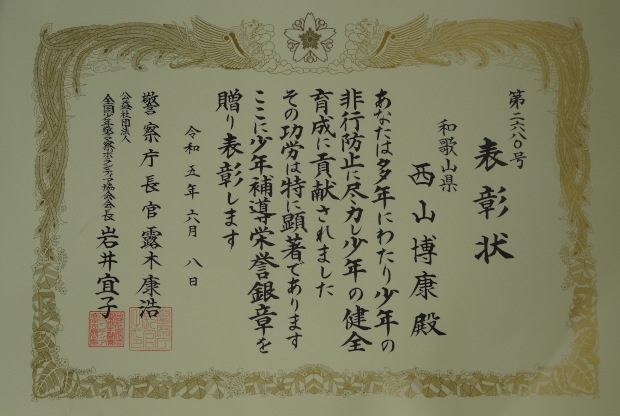 第二六八〇号
表彰状
和歌山県
西山博康殿
あなたは多年にわたり少年の
非行防止に尽力し少年の健全
育成に貢献されました
その功労は特に顕著であります
ここに少年補導栄誉銀章を
贈り表彰します
令和五年六月八日
警察庁長官露木康浩
公益社団法人
全国少年警察ボランティア協会会長岩井宜子